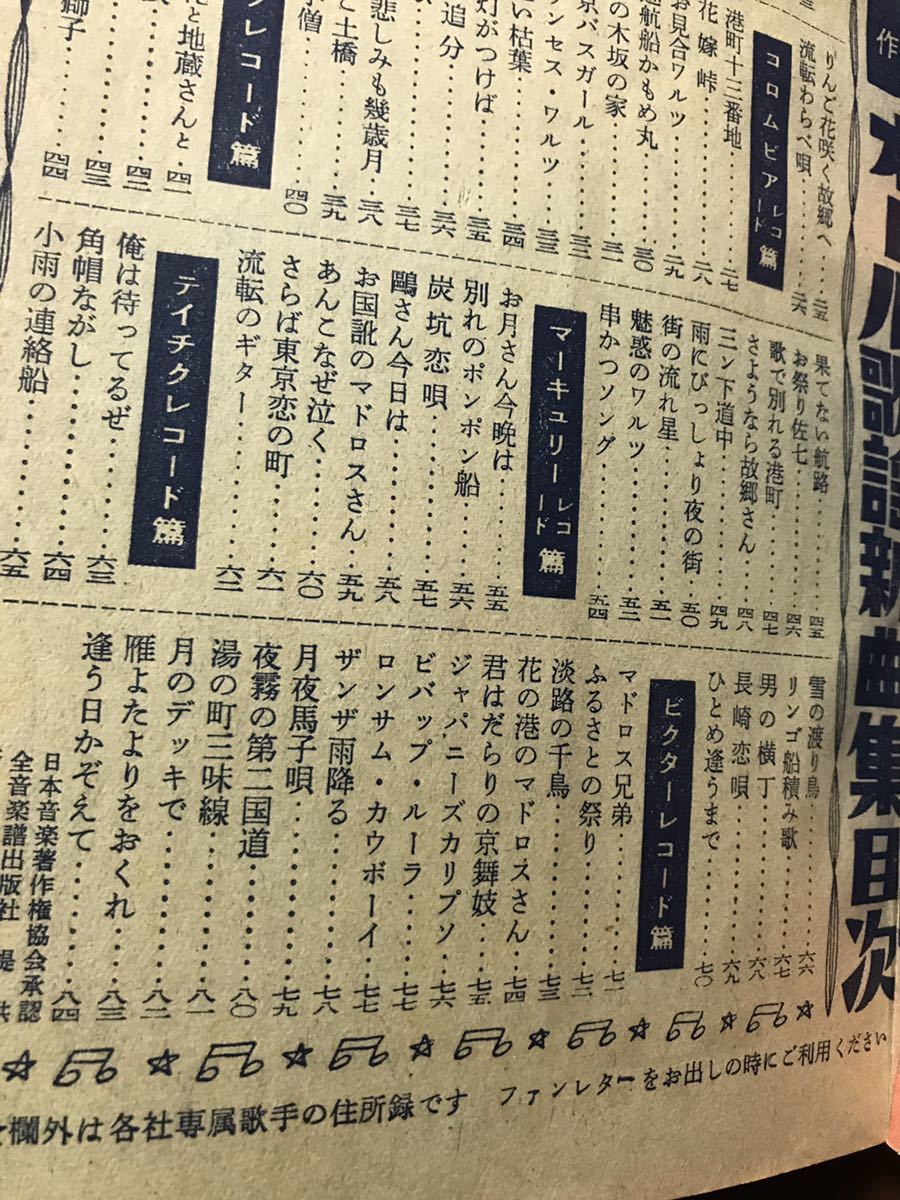 作
オール歌謡新曲集目次
りんご花咲く故郷へ……三五
流転わらべ唄……三六
コロムビアレコード篇
港町十三番地……二七
花嫁峠……二八
お見合ワルツ……二九
航船かめ丸……三〇
の木坂の家……三一
京バスガール……三二
ンセス・ワルツ……三三
い枯葉……三四
灯がつけば……三五
追分……三六
……三七
悲しみも幾歳月……三八
と土橋……三九
僧……四〇
レコード篇
と地蔵さんと……四一
……四二
……四三
獅子……四四
果てない航路……四五
お祭り佐七……四六
歌で別れる港町……四七
さようなら故郷さん……四八
三ン下道中……四九
雨にびっしょり夜の街……五〇
街の流れ星……五一
魅惑のワルツ……五二
串かつソング……五四
マーキュリーレコード篇
お月さん今晩は……五五
別れのポンポン船……五六
炭坑恋唄……五七
鷗さん今日は……五八
お国訛のマドロスさん……五九
あんこなぜ泣く……六〇
さらば東京恋の町……六一
流転のギター……六二
テイチクレコード篇
俺は待ってるぜ……六三
角帽ながし……六四
小雨の連絡船……六五
雪の渡り鳥……六六
リンゴ船積み歌……六七
男の横丁……六八
長崎恋唄……六九
ひとめ逢うまで……七〇
ビクターレコード篇
マドロス兄弟……七一
ふるさとの祭り……七二
淡路の千鳥……七三
花の港のマドロスさん……七四
君はだらりの京舞妓……七五
ジャパニーズカリプソ……七六
ビバップ・ルーラ……七七
ロンサム・カウボーイ……七七
ザンザ雨降る……七八
月夜馬子唄……七九
夜霧の第二国道……八〇
湯の町三味線……八一
月のデッキで……八二
雁よたよりをおくれ……八三
逢う日かぞえて……八四
日本音楽著作権協会承認
全音楽譜出版社 提供
欄外は各社専属歌手の住所録です ファンレターをお出しの時にご利用ください